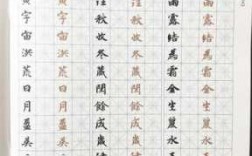 雨露結為霜金生麗水
雨露結為霜金生麗水
往秋收冬藏閏餘成歲
往秋收冬藏閏餘成歲
黃宇宙洪荒日月盈昃
黃宇宙洪荒日月盈昃